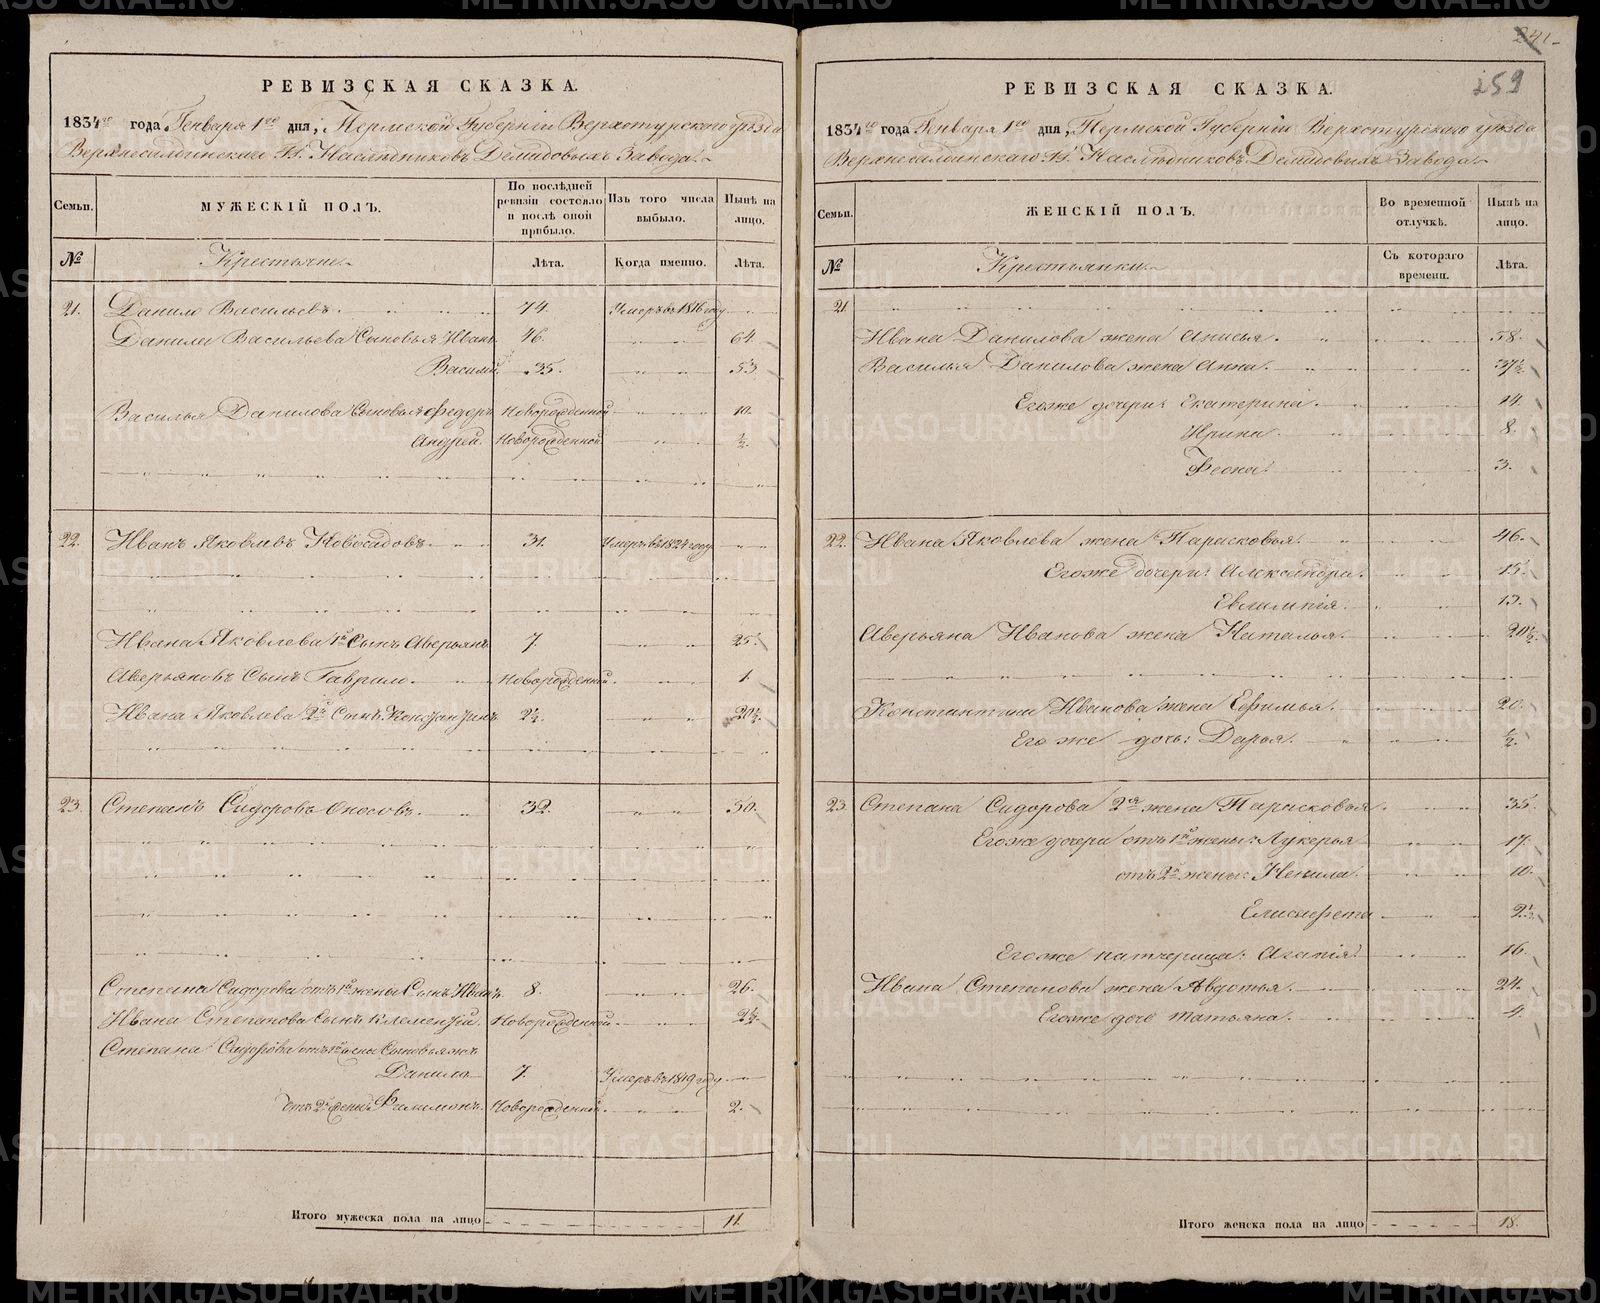 РЕВИЗСКАЯ СКАЗКА.
1834го года Генваря 1го дня, Пермской Губернiи Верхотурскаго уѣзда
Верхнесалдинскаго Гг. Наслѣдниковъ Демидовыхъ Завода.
Семьи. МУЖЕСКIЙ ПОЛЪ. По послѣдней ревизiи состояло и послѣ оной прибыло. Изъ того числа выбыло. Нынѣ на лицо.
№ Крестьяне. Лѣта. Когда именно. Лѣта.
21. Данило Васильевъ. 74. Умеръ въ 1816 году
Данилы Васильева Сыновья Иванъ 46. 64
Василiй. 35. 53
Василья Данилова Сыновья Федоръ Новорожденной
Андрей. Новорожденной ½
22. Иванъ Яковлевъ Новосадовъ. 31. Умеръ въ 1824 году
Ивана Яковлева 1й Сынъ Аверьянъ 7. 25
Аверьяновъ Сынъ Гаврило. Новорожденной 1.
Ивана Яковлева 2й Сынъ Константинъ 2½. 20½
23. Степанъ Сидоровъ Оносовъ. 32. 50.
Степана Сидорова отъ 1й жены Сынъ Иванъ 8. 26.
Ивана Степанова Сынъ Клементiй. Новорожденной 2½
Степана Сидорова отъ 1й жены Сыновья жъ
Данило 7. Умеръ въ 1819 году
отъ 2й жены Филимонъ. Новорожденной. 2.
Итого мужеска пола на лицо 11.
241
259
РЕВИЗСКАЯ СКАЗКА.
1834го года Генваря 1го дня, Пермской Губернiи Верхотурскаго уѣзда
Верхнесалдинскаго Гг. Наслѣдниковъ Демидовыхъ Завода
Семьи. ЖЕНСКIЙ ПОЛЪ. Во временной отлучкѣ. Нынѣ на лицо.
№ Крестьянки. Съ котораго времени. Лѣта.
21.
Ивана Данилова жена Анисья. 58.
Василья Данилова жена Анна. 37½
Егоже дочери: Екатерина. 14.
Ирина. 8.
Феона. 3.
22. Ивана Яковлева жена Парасковья. 46.
Егоже дочери: Александра. 15.
Евлампiя. 13.
Аверьяна Иванова жена Наталья. 20½
Константина Иванова жена Ефимья. 20.
Его же дочь: Дарья. ½.
23. Степана Сидорова 2я жена Парасковья. 35.
Егоже дочери отъ 1й жены: Лукерья 17.
отъ 2й жены: Ненила. 10.
Елисавета 2½
Егоже патчерица: Агапiя. 16.
Ивана Степанова жена Авдотья. 24.
Егоже дочь Татьяна. 4.
Итого женска пола на лицо 18.
METRIKI.GASO-URAL.RU